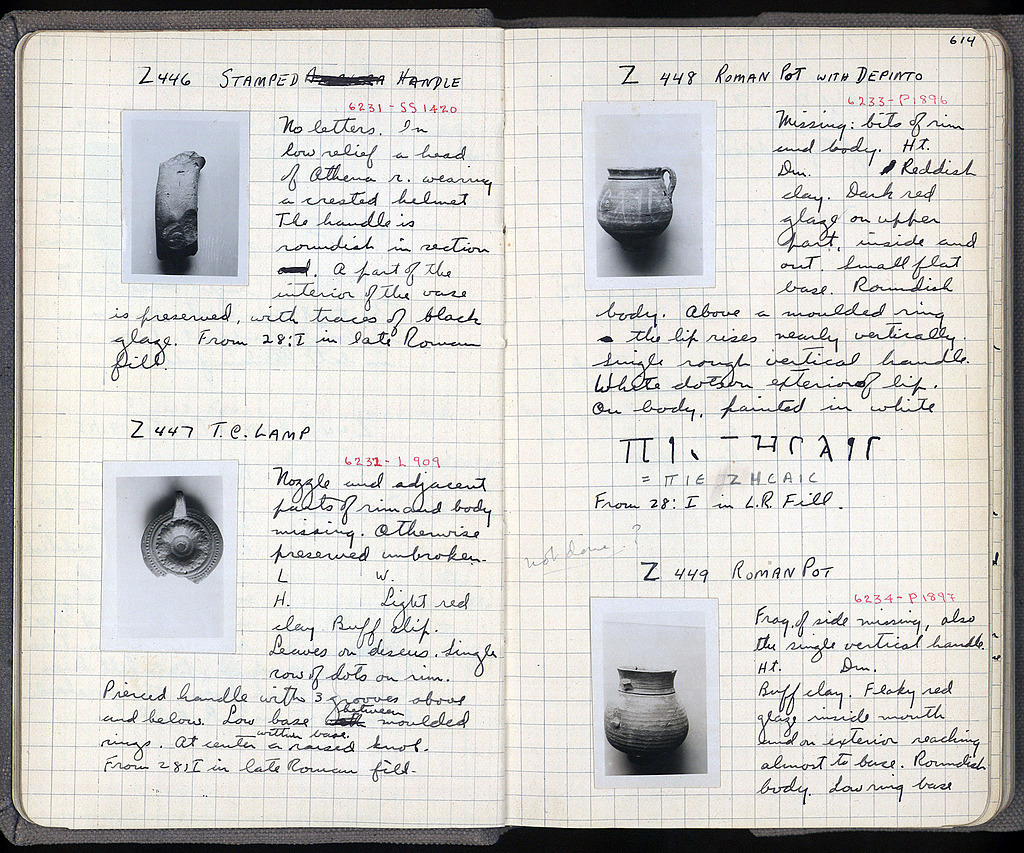 Z 446 STAMPED HANDLE
6231 - SS 1420
No letters. In
low relief a head
of Athena r. wearing
a crested helmet
The handle is
roundish in section
A part of the
interior of the vase
is preserved, with traces of black
glaze. From 28:I in late Roman
fill.
Z 447 T.C. LAMP
6232 - L 909
Nozzle and adjacent
parts of rim and body
missing. Otherwise
preserved unbroken.
L W.
H. Light red
clay Buff slip.
Leaves on discus. Single
row of dots on rim.
Pierced handle with 3 grooves above
and below. Low base between moulded
rings. At center within base. a raised knob.
From 28:I in late Roman fill.
614
Z 448 ROMAN POT WITH DEPINTO
6233 - P 1896
Missing: bits of rim
and body. Ht.
Dm. Reddish
clay. Dark red
glaze on upper
part, inside and
out. Small flat
base. Roundish
body. Above a moulded ring
the lip rises nearly vertically.
Single rough vertical handle.
White dots on exterior of lip.
On body, painted in white
= ΠΙΕ ΖΗCΑΙC
From 28: I in L.R. Fill.
not done ?
Z 449 ROMAN POT
6234 - P 1897
Frag. of side missing, also
the single vertical handle.
Ht. Dm.
Buff clay. Flaky red
glaze inside mouth
and on exterior reaching
almost to base. Roundish
body. Low ring base